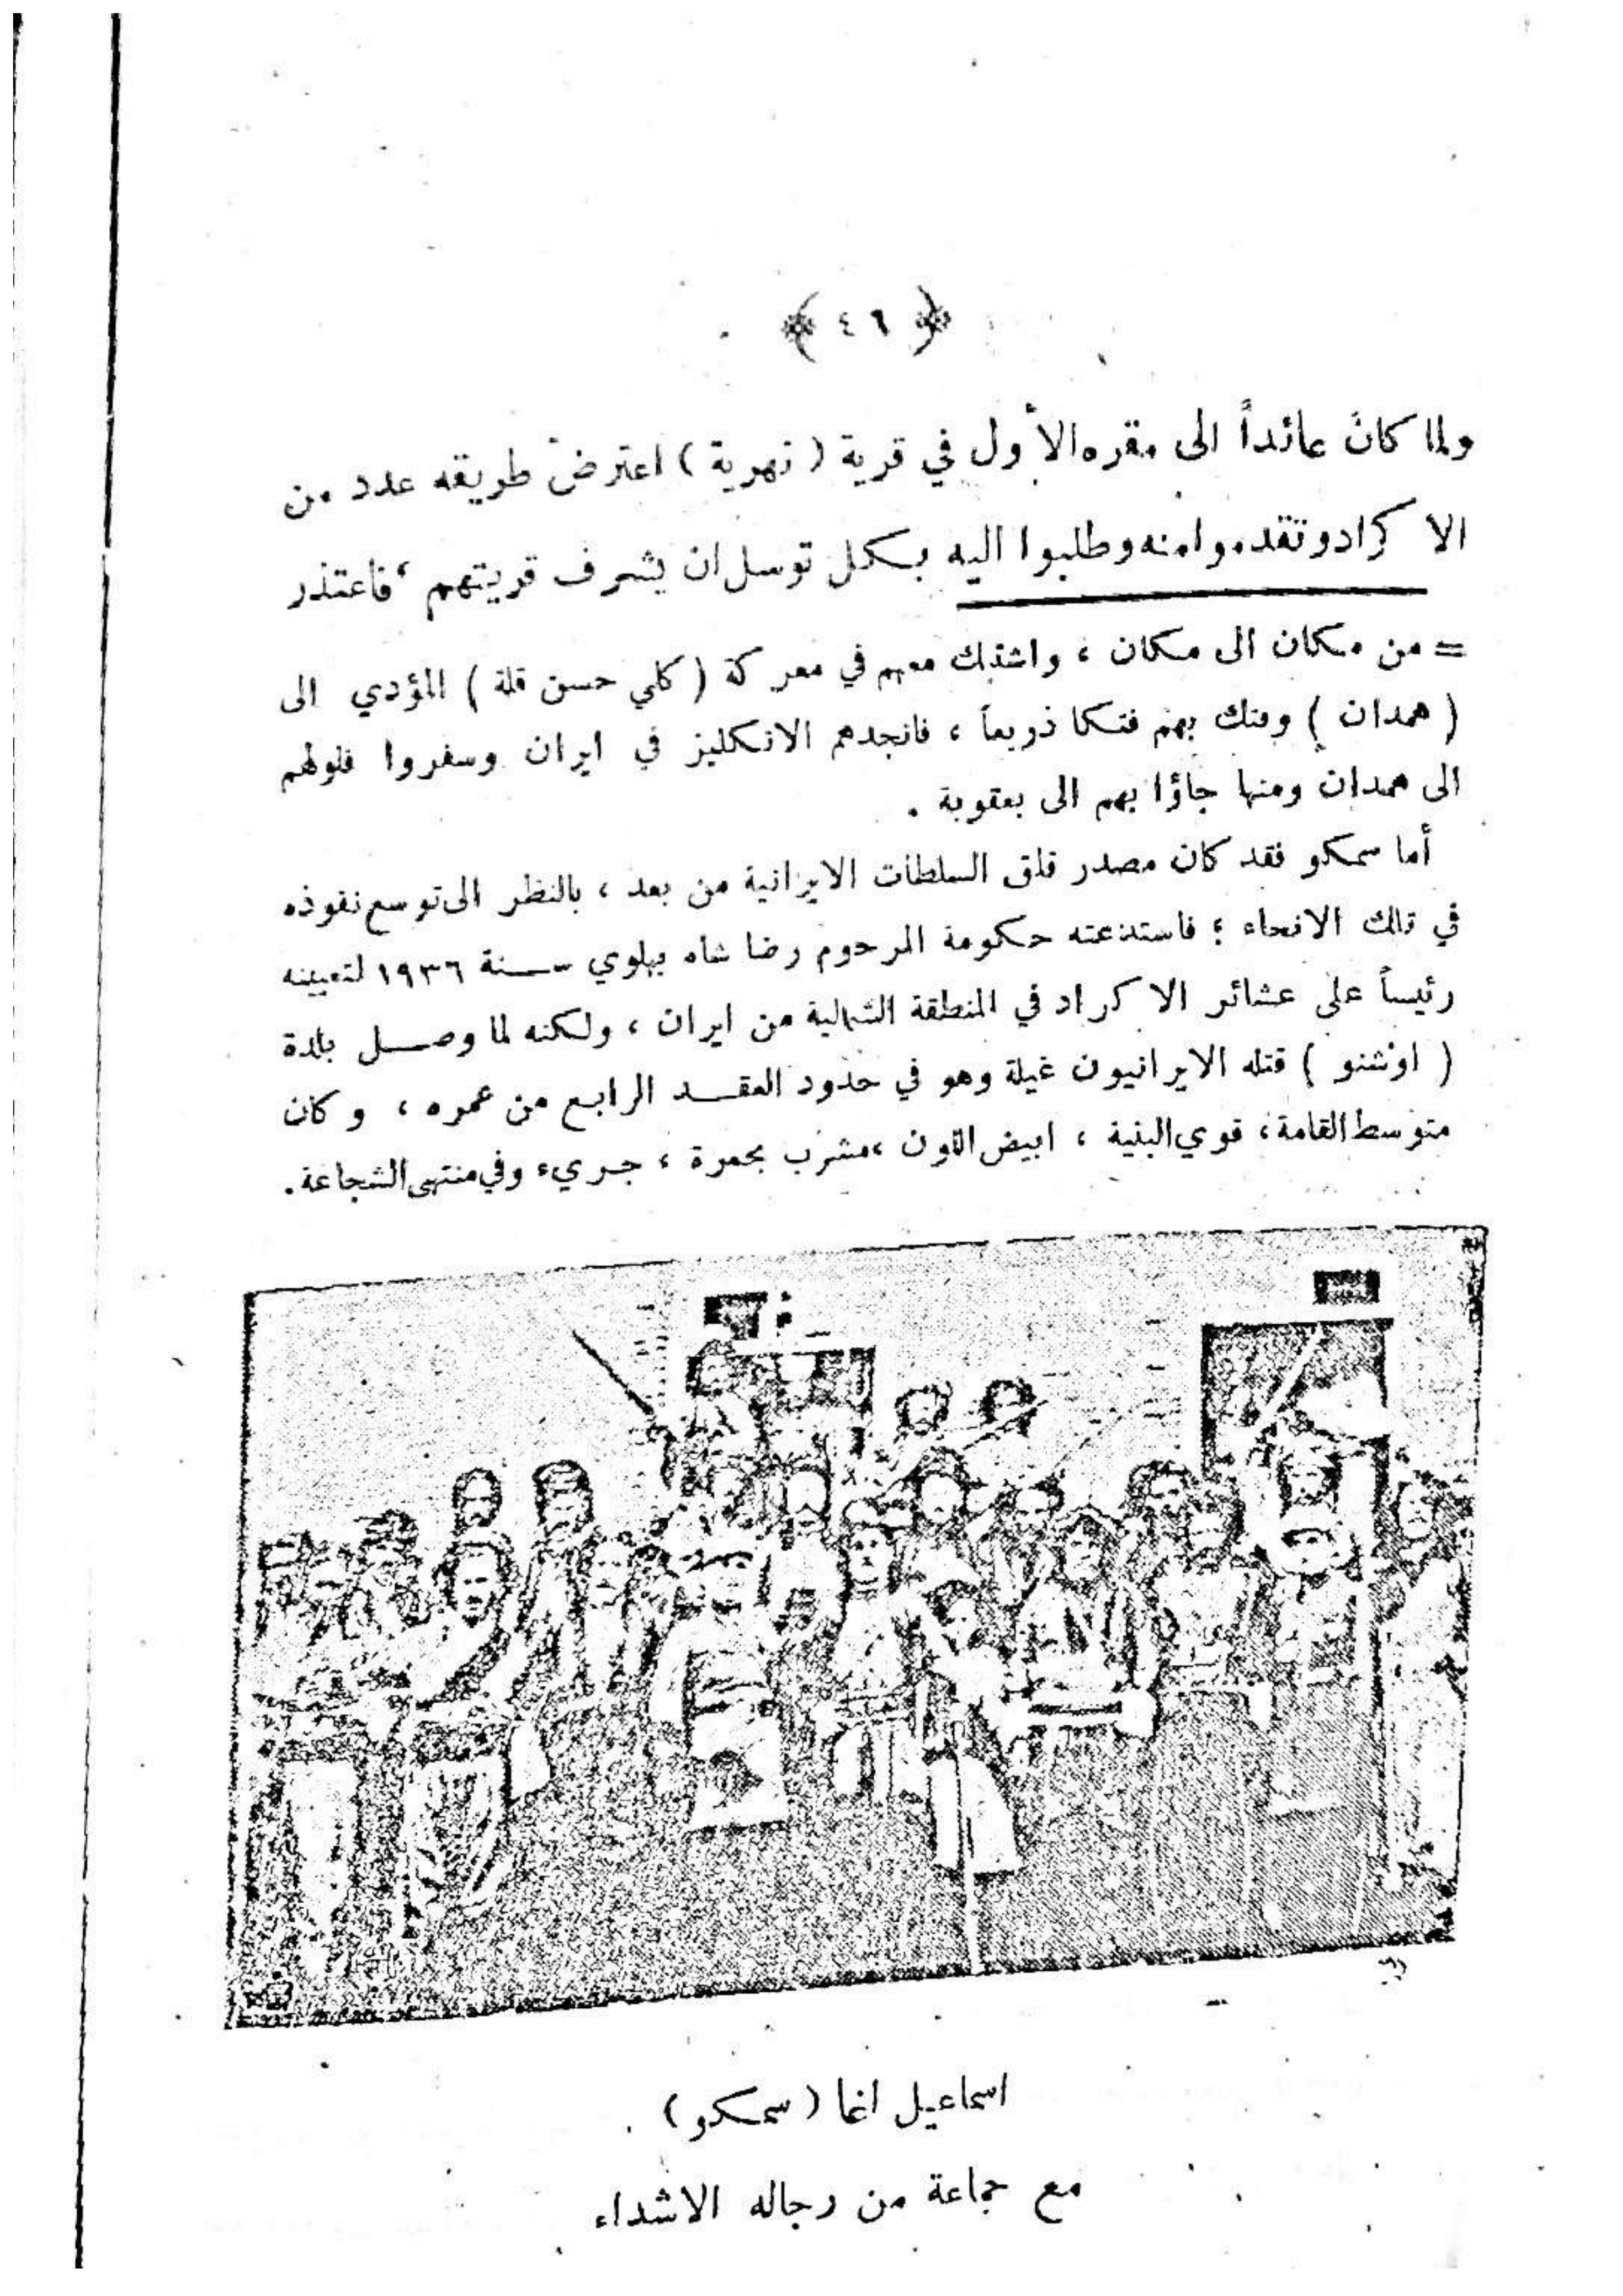 ﴿ ٤٦ ﴾
ولما كان عائداً الى مقره الأول في قرية ( نهرية ) اعترض طريقه عدد من
الاكراد وتقدموا منه وطلبوا اليه بكل توسل ان يشرف قريتهم ، فاعتذر
= من مكان الى مكان ، واشتبك معهم في معركة ( كلي حسن قلة ) المؤدي الى
( همدان ) وفتك بهم فتكا ذريعاً ، فانجدهم الانكليز في ايران وسفروا فلولهم
الى همدان ومنها جاؤا بهم الى بعقوبة .
أما سمكو فقد كان مصدر قلق السلطات الايرانية من بعد ، بالنظر الى توسع نفوذه
في تلك الانحاء ؛ فاستدعته حكومة المرحوم رضا شاه بهلوي سنة ١٩٣٦ لتعيينه
رئيساً على عشائر الاكراد في المنطقة الشمالية من ايران ، ولكنه لما وصل بلدة
( اوشنو ) قتله الايرانيون غيلة وهو في حدود العقد الرابع من عمره ، وكان
متوسط القامة ، قوي البنية ، ابيض اللون ، مشرب بحمرة ، جريء وفي منتهى الشجاعة .
اسماعيل اغا ( سمكو ) .
مع جماعة من رجاله الاشداء